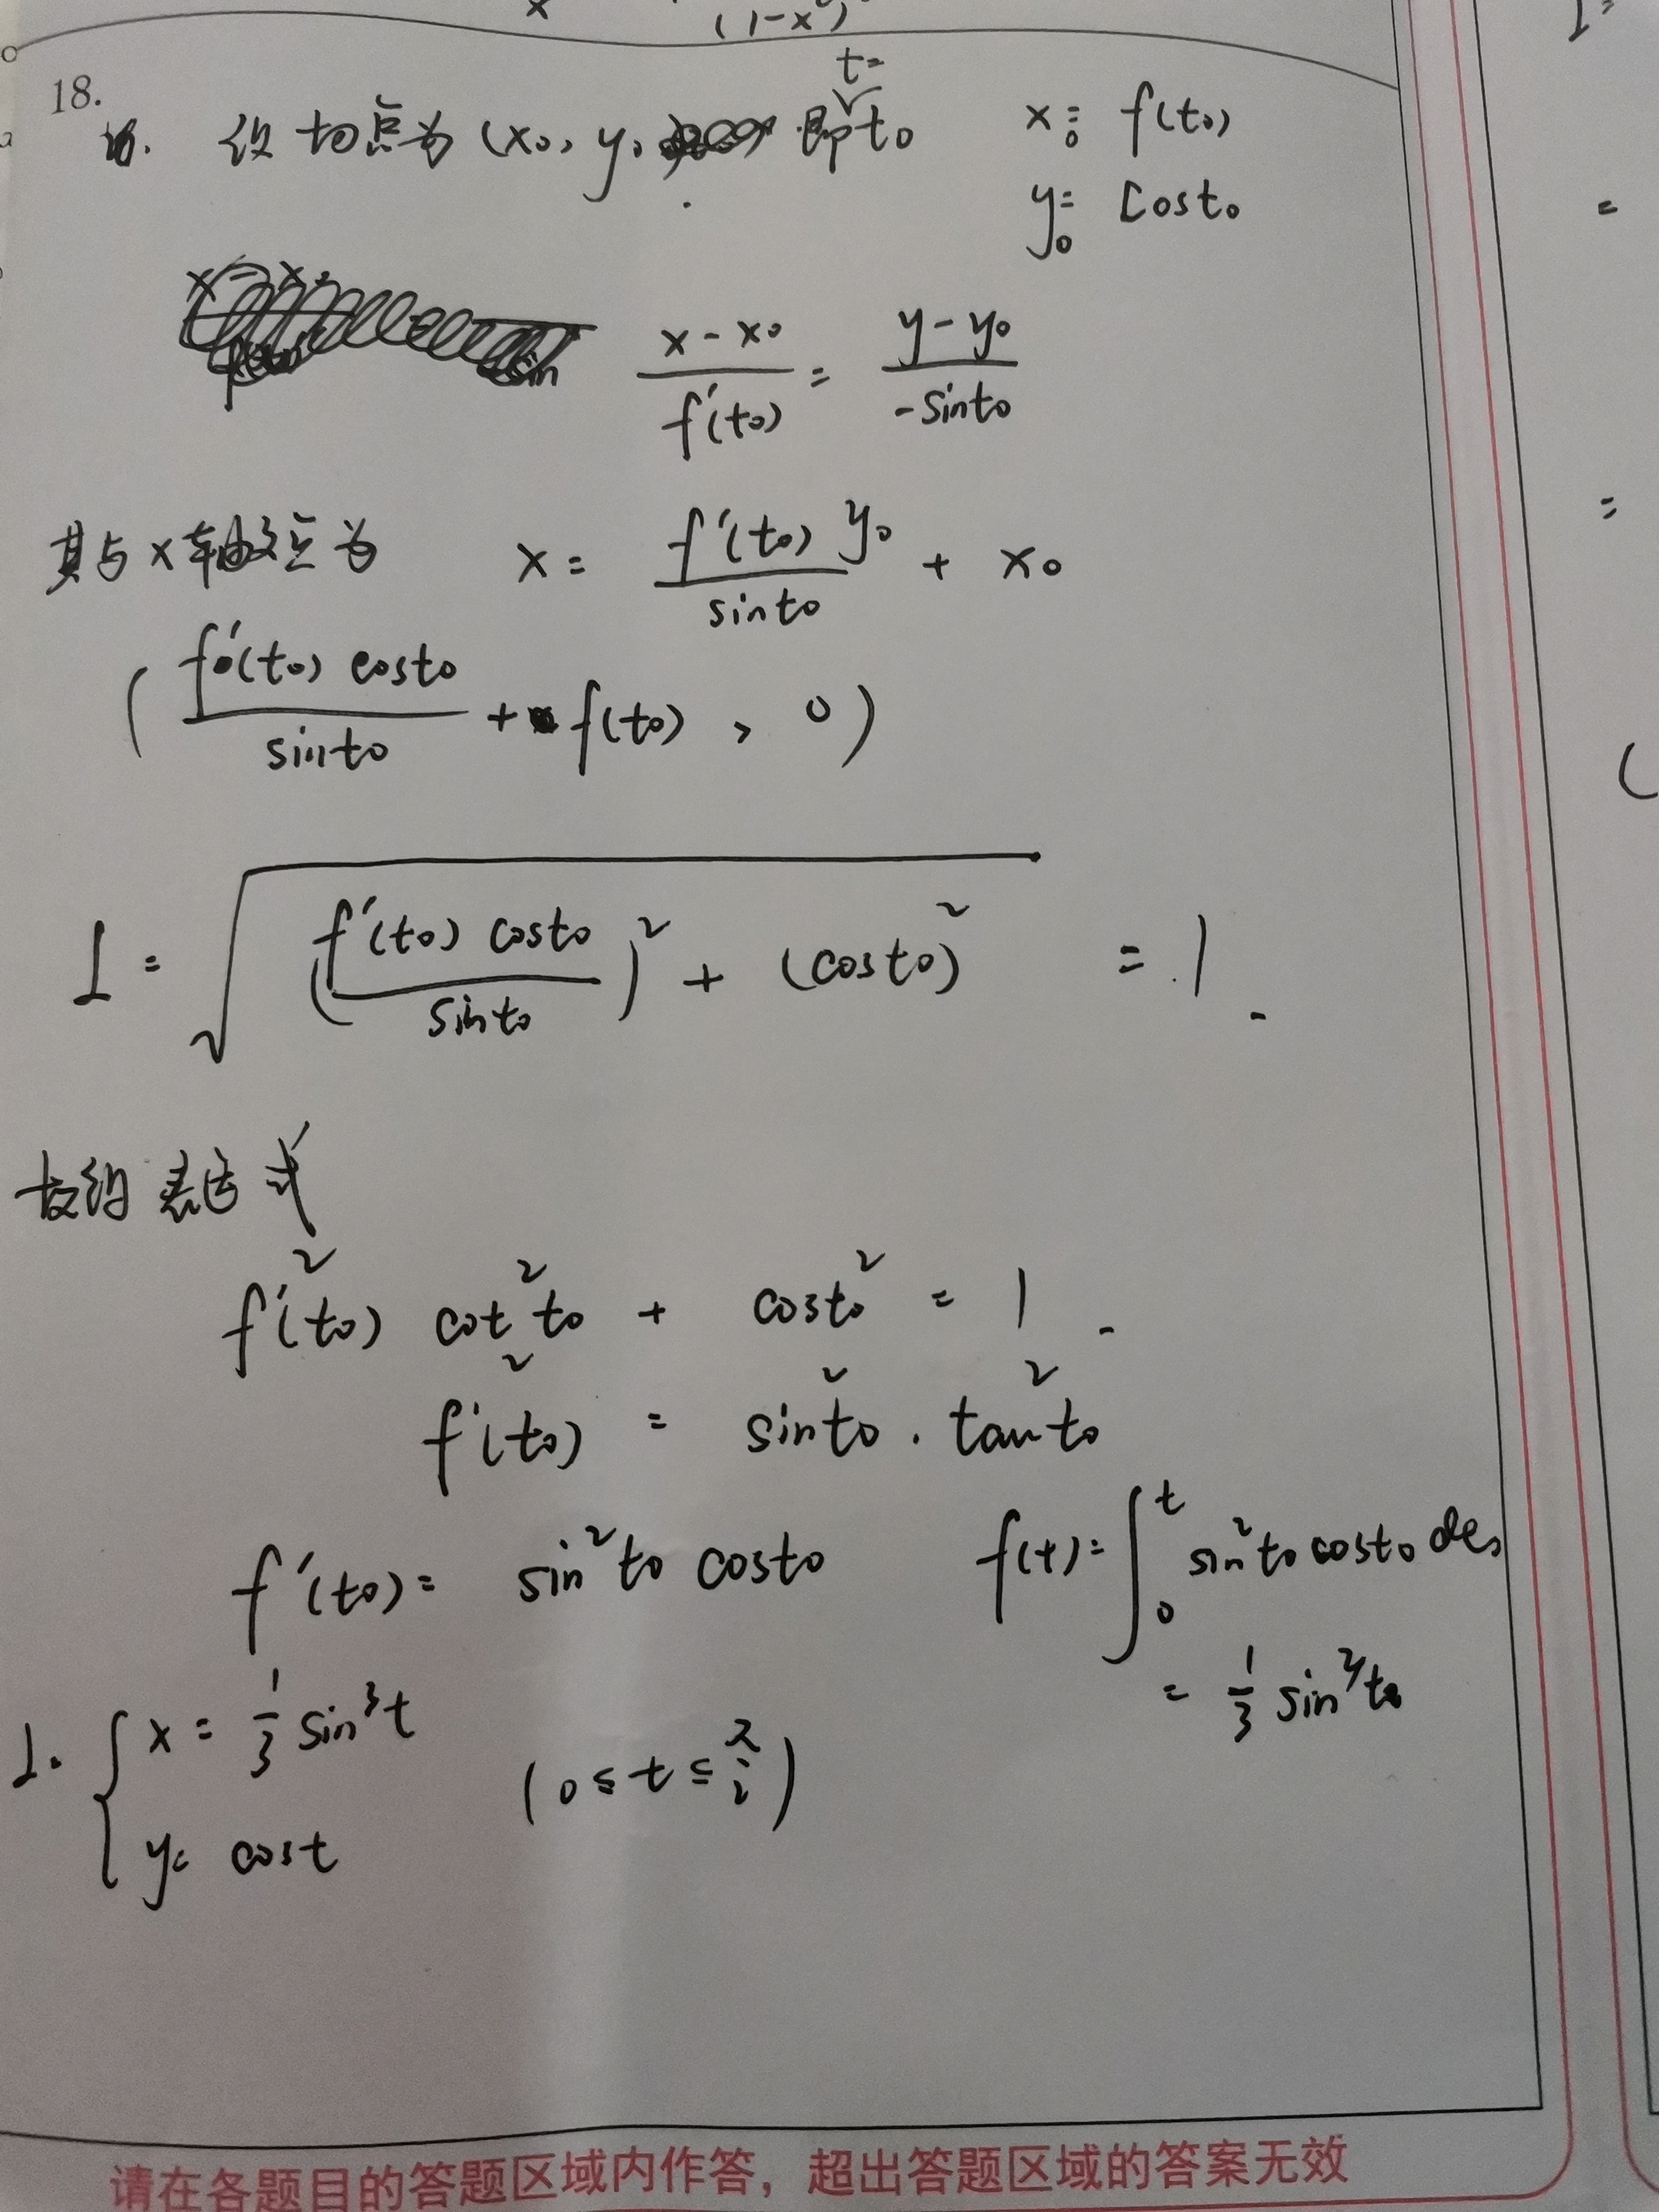 x (1-x²)²
18.
设切点为 (x₀, y₀ 即 t=t₀ x₀= f(t₀)
y₀= cost₀
(x-x₀)/f'(t₀) = (y-y₀)/(-sint₀)
其与x轴交点为 x= f'(t₀) y₀/sint₀ + x₀
( f'(t₀) cost₀/sint₀ + f(t₀) , 0 )
L = √((f'(t₀) cost₀/sint₀)² + (cost₀)²) = 1.
故的表达式
f'²(t₀) cot²t₀ + cost₀² = 1.
f'²(t₀) = sin²t₀ . tan²t₀
f'(t₀)= sin²t₀ cost₀ f(t)= ∫₀ᵗ sin²t₀ cost₀ dt₀
= 1/3 sin³t₀
L. { x = 1/3 sin³t
(0≤t≤π/2)
y= cost
请在各题目的答题区域内作答，超出答题区域的答案无效